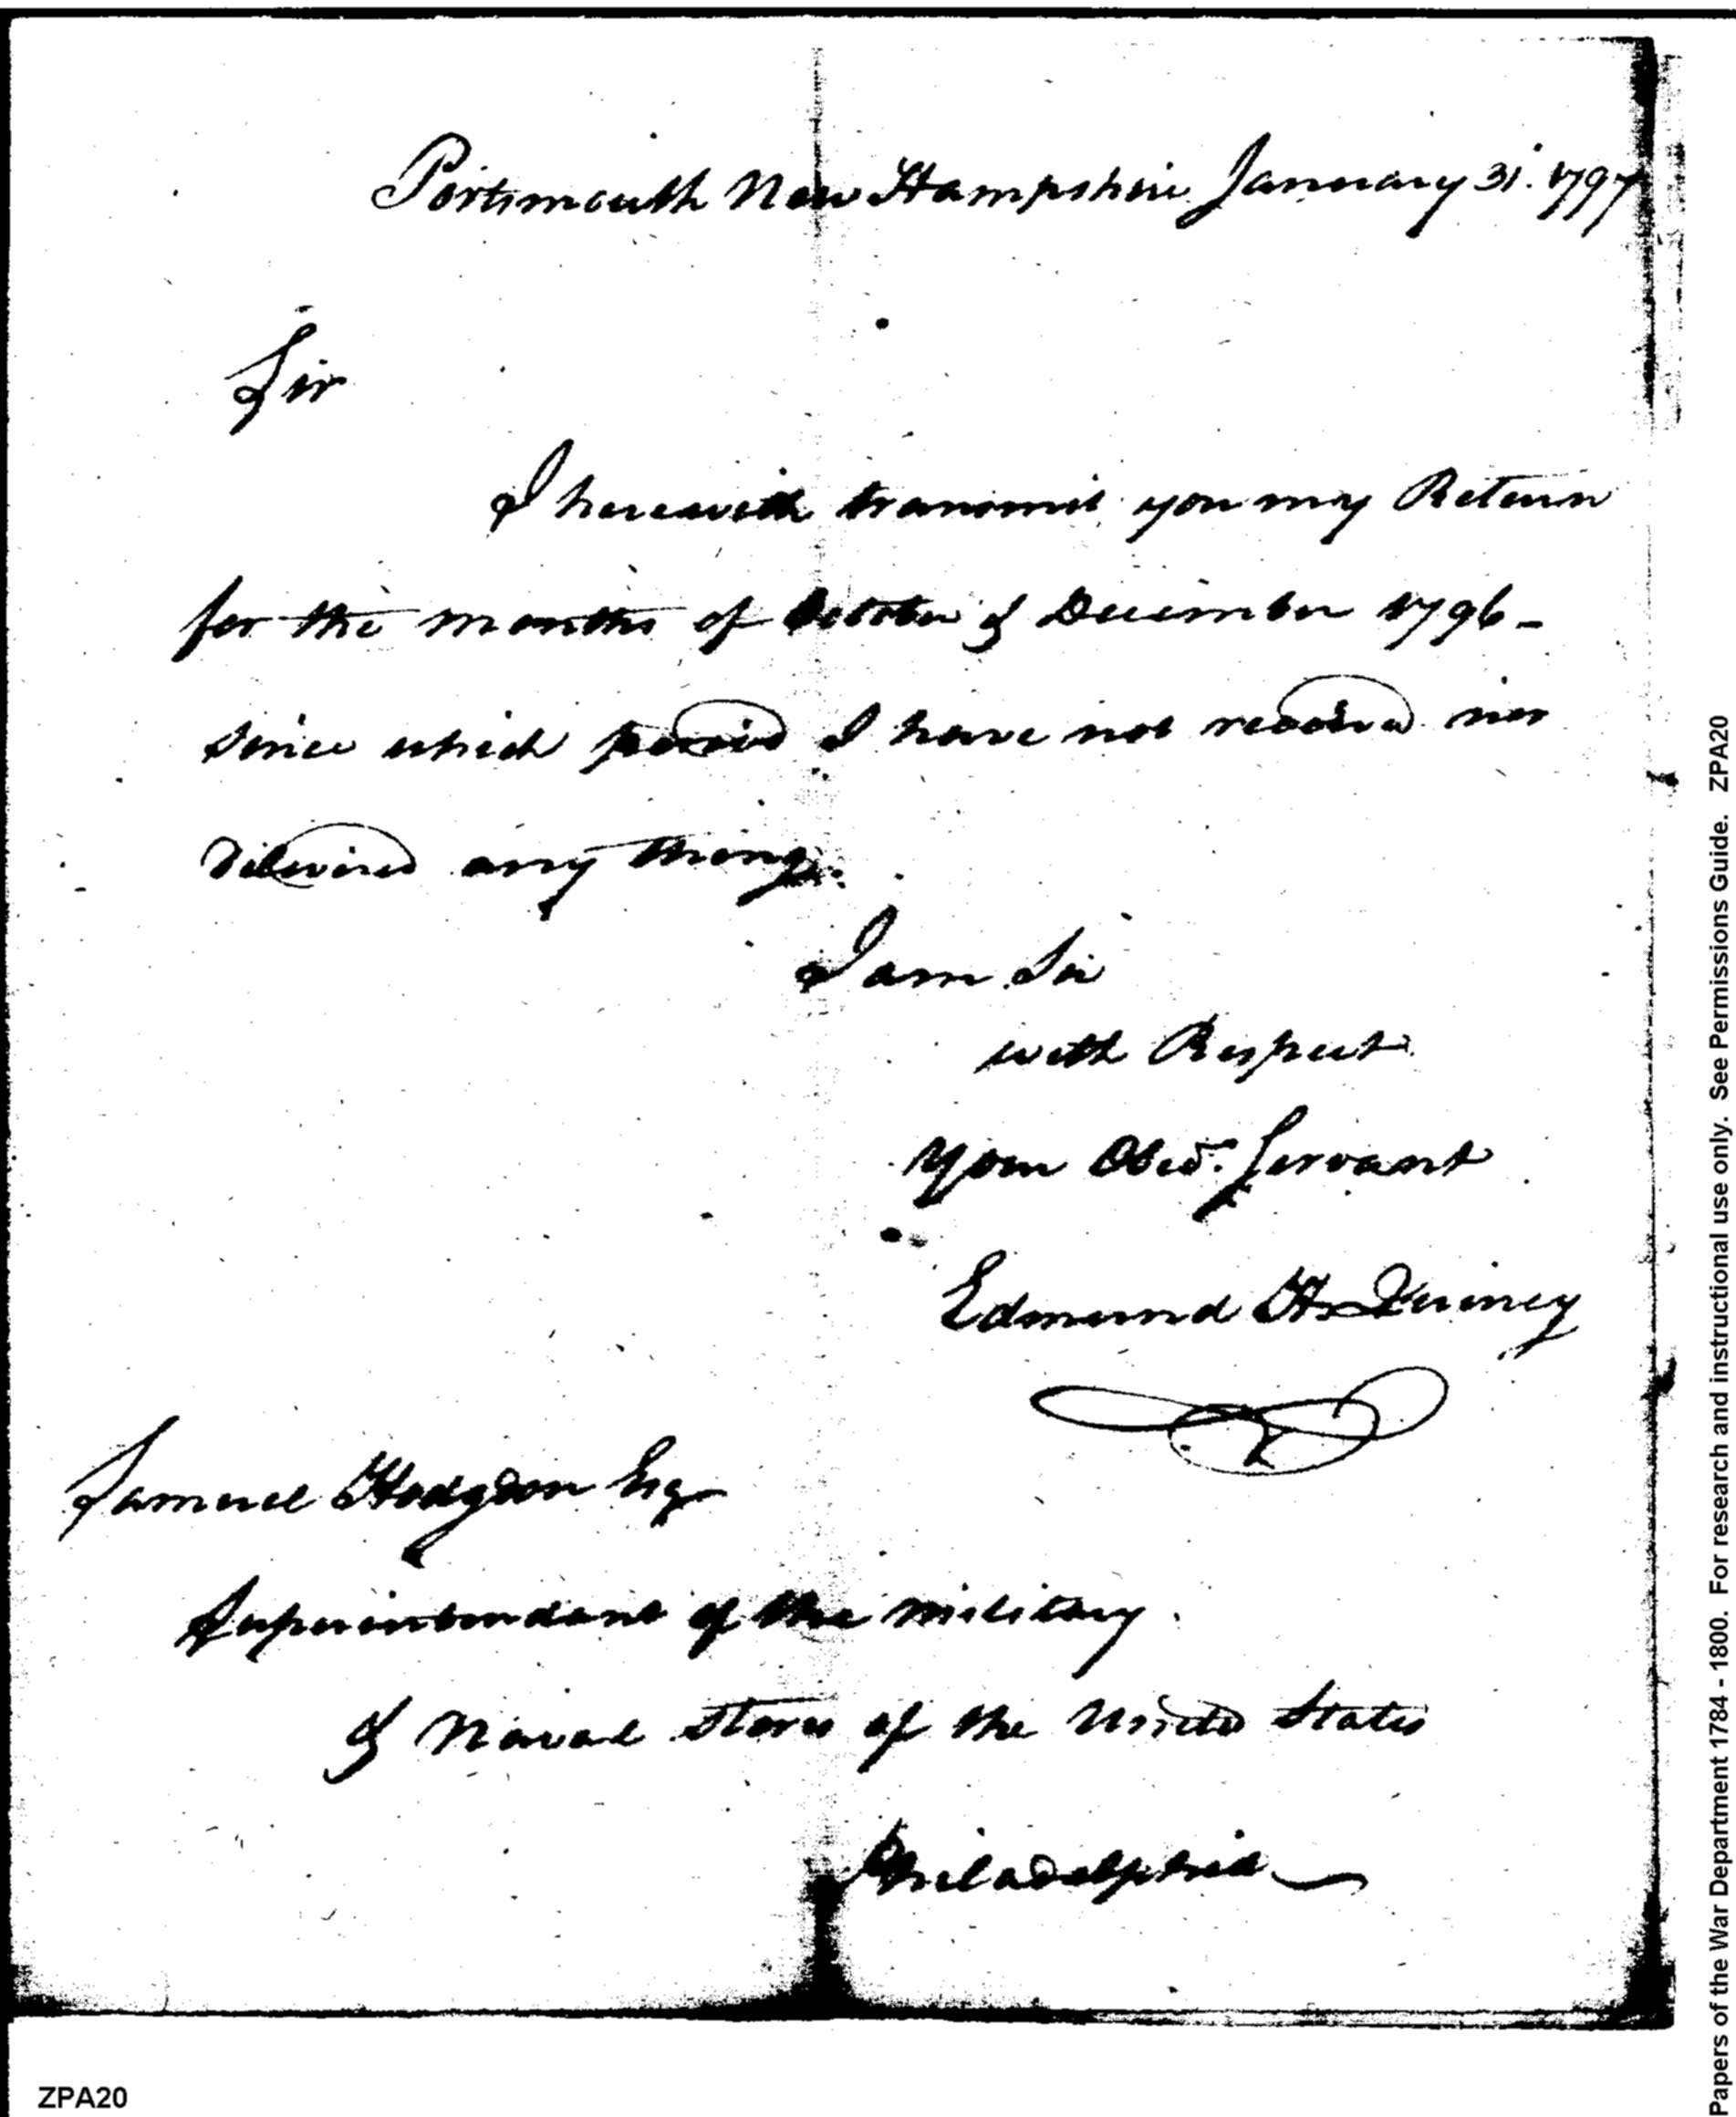 Portsmouth New Hampshire January 31. 1797
Sir
I herewith transmit you my Return
for the months of October & December 1796 -
since which period I have not received nor
Delivered any thing.
I am Sir
with Respect
Your Obed. Servant
Edmund H. Quincy
Samuel Hodgdon Esq
Superintendant of the military
& Naval Stores of the United States
Philadelphia
ZPA20
Papers of the War Department 1784 - 1800. For research and instructional use only. See Permissions Guide. ZPA20